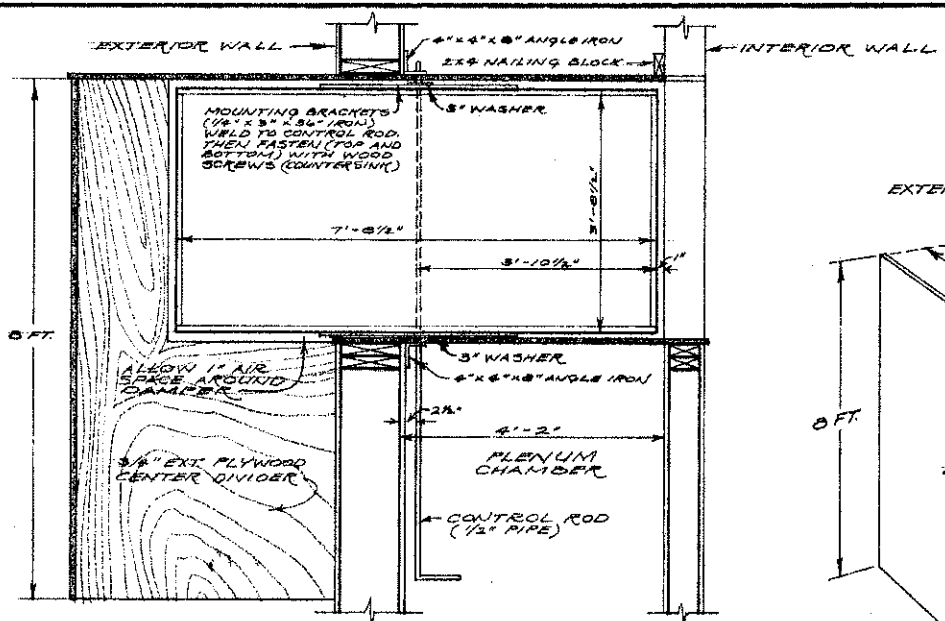 EXTERIOR WALL
4" x 4" x 8" ANGLE IRON
2x4 NAILING BLOCK
INTERIOR WALL
MOUNTING BRACKETS
(1/4" x 3" x 36" IRON)
WELD TO CONTROL ROD.
THEN FASTEN (TOP AND
BOTTOM) WITH WOOD
SCREWS (COUNTERSINK)
3" WASHER
3'-8 1/2"
7'-8 1/2"
3'-10 1/2"
1"
8 FT.
ALLOW 1" AIR
SPACE AROUND
DAMPER
3" WASHER
4" x 4" x 8" ANGLE IRON
2 1/2"
4'-2"
PLENUM
CHAMBER
3/4" EXT. PLYWOOD
CENTER DIVIDER
CONTROL ROD
(1/2" PIPE)
EXTE
8 FT.